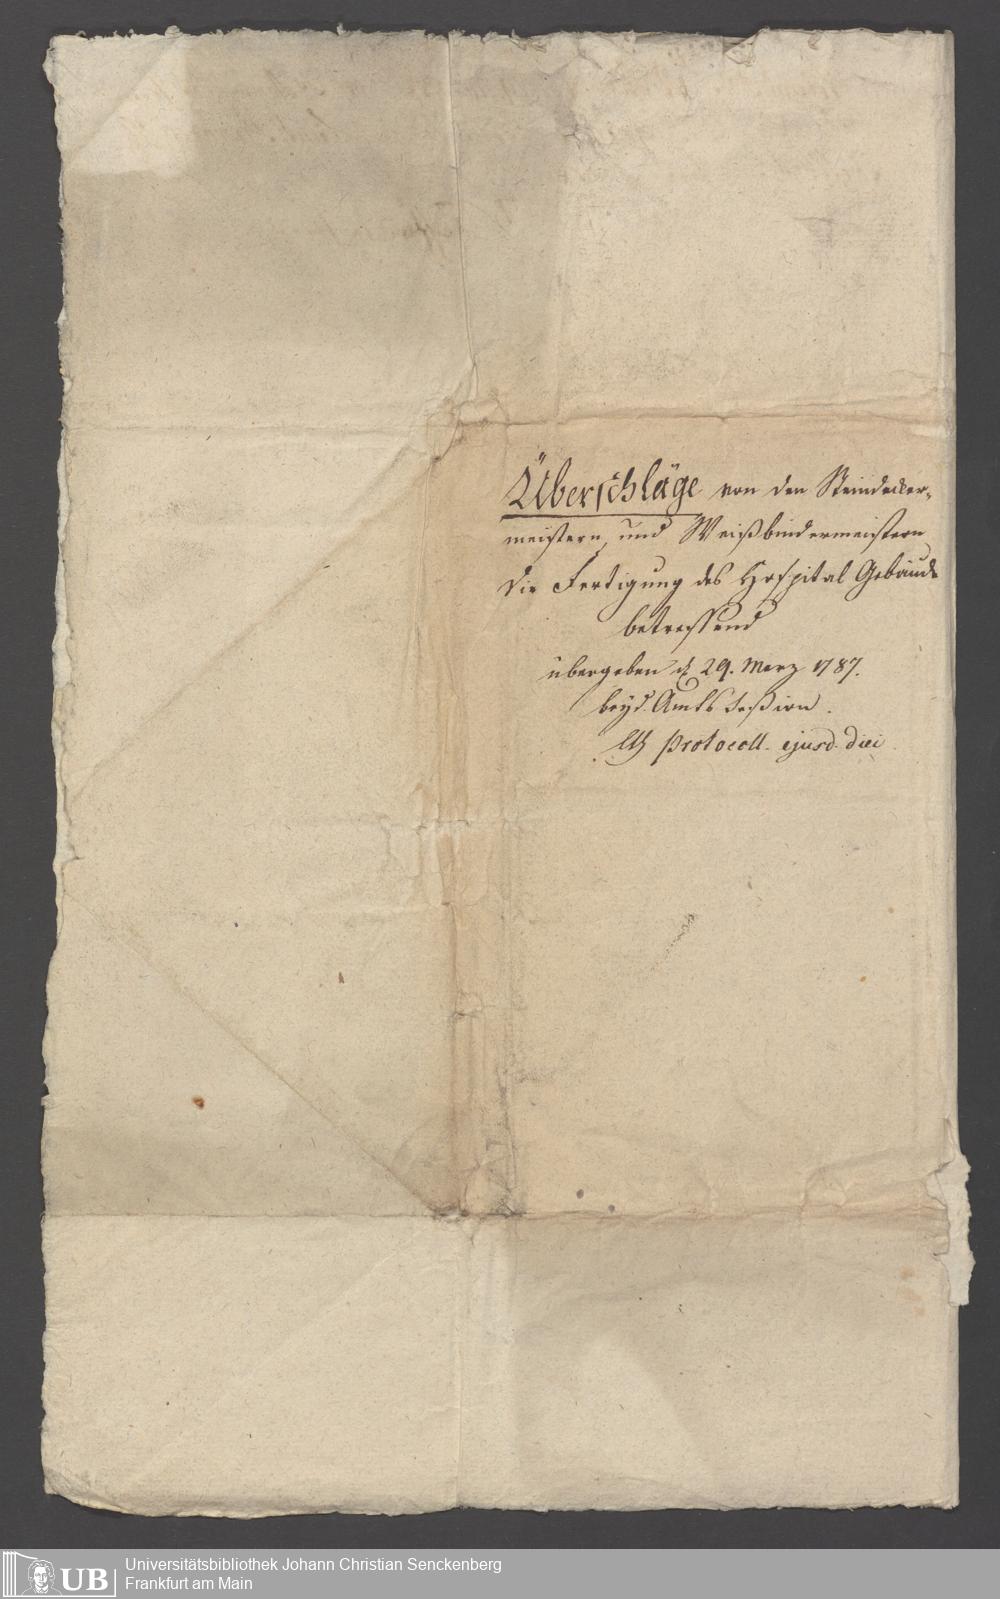 Überschläge von den Steindecker-
meistern, und Weißbindermeistern
die Fertigung des Hospital Gebäude
betreffend
übergeben d. 29. Merz 1787.
beÿd. Amts Seßion.
Protocoll. ejusd. diei.
UB
Universitätsbibliothek Johann Christian Senckenberg
Frankfurt am Main